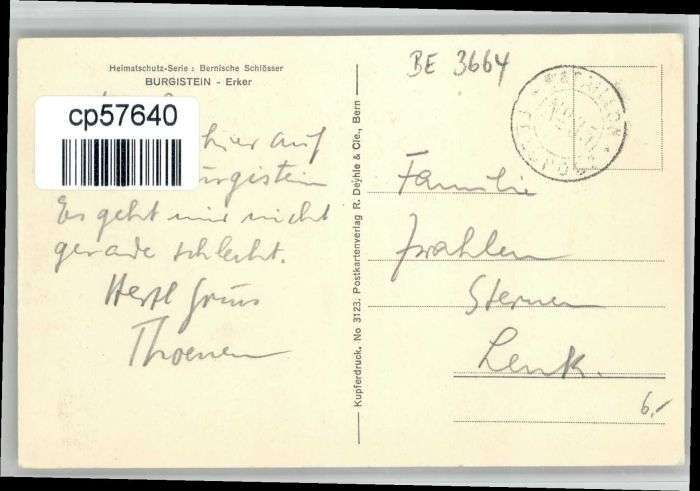 Heimatschutz-Serie : Bernische Schlösser
BURGISTEIN - Erker
BE 3664
cp57640
hier auf
Burgistein
Es geht mir nicht
gerade schlecht.
Herzl Gruss
Thoenen
Kupferdruck. No 3123. Postkartenverlag R. Deyhle & Cie., Bern
Familie
Zrahlen
Sternen
Lenk.
6.-